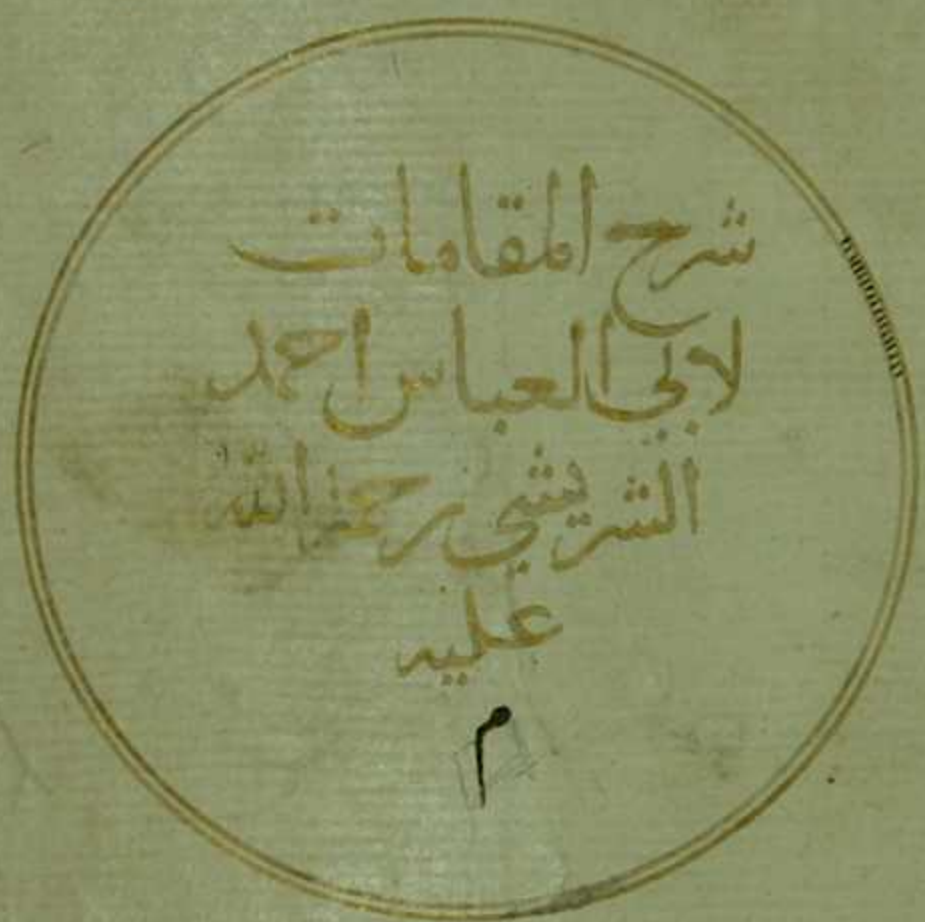 شرح المقامات
لابي العباس احمد
الشريشي رحمة الله
عليه
م